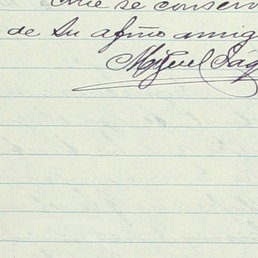 que se conserv
de su afmo amig
Miguel Sáq